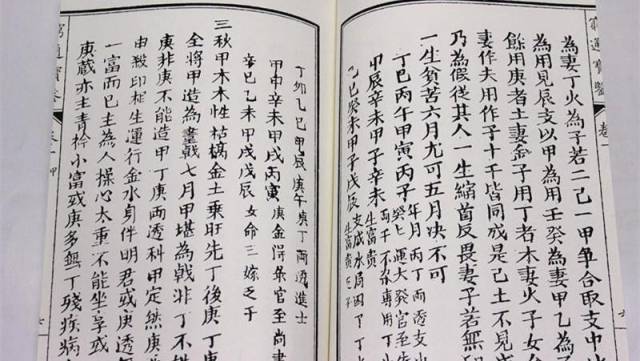 窮通寶鑒
卷一
為妻丁火為子若二己一甲單合取支中
為用見辰支以甲為用壬癸為妻甲乙為
餘用庚者土妻金子用丁者木妻火子女
妻作夫用作子十干皆同或是己土不見
乃為假從其人一生縮首反畏妻子若無
一生貧苦六月尤可五月決不可
丁巳丙午甲寅丙子
甲辰辛未甲子辛未
己巳癸未甲子戊辰
丁卯乙巳甲辰庚午庚丁兩透進士
甲申辛未甲戌丙寅庚金得祿官至尚書
辛巳乙未甲戌戊辰女命三嫁乏子
三秋甲木木性枯槁金土乗旺先丁後庚丁
全將甲造為畫戟七月甲堪為戟非丁不
庚非庚不能造甲丁庚兩透科甲定然庚
申殺印相生運行金水身伴明君或庚透
一富而已主為人操心太重不能坐享或
庚藏亦主青衿小富或庚多無丁殘疾病
窮通寶鑒
卷一
甲